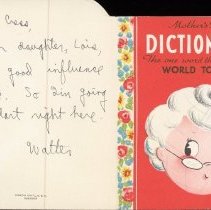 Cress,
daughter, Lois,
good influence
. So I'm going
start right here.
Walter
Mother's
DICTION
The one word th
WORLD TO